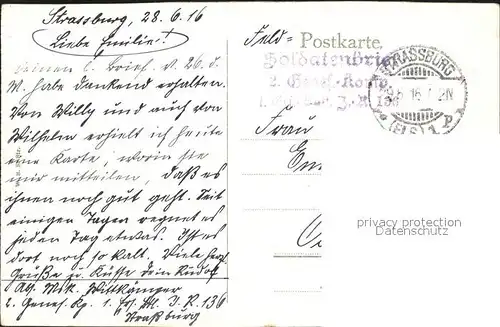 Strassburg, 28.6.16
Liebe Emilie!
Deinen l. Brief v. 26. d.
M. habe dankend erhalten.
Von Willy und auch von
Wilhelm erhielt ich heute
eine Karte, worin sie
mir mitteilen, daß es
ihnen noch gut geht. Seit
einigen Tagen regnet es
jeden Tag etwas. Ist es
dort noch so kalt. Viele herz.
Grüße u. Küsse Dein Rudolf
Abs. Msk. Wittkämper
2. Genes. Kp. 1. Ers. Btl. I. R. 136
Straßburg
Feld=Postkarte.
Soldatenbrief
2. Genes.-Komp.
136
STRASSBURG
16
2N
(ELS) 1 P
Frau
privacy protection
Datenschutz